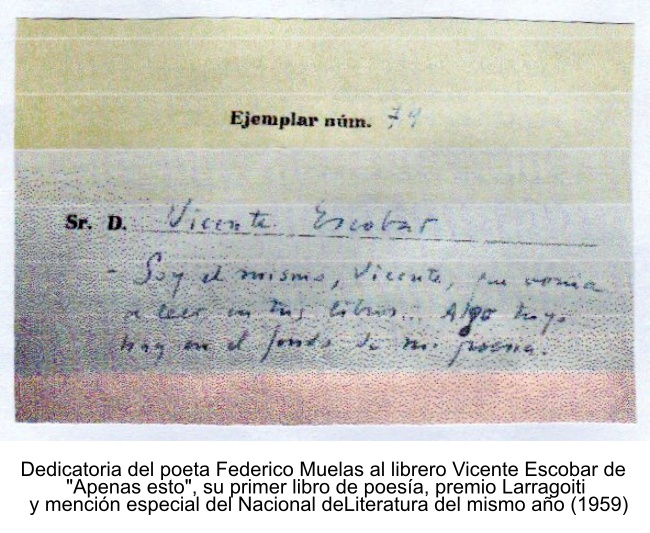 Ejemplar núm. 79
Sr. D. Vicente Escobar
- Soy el mismo, Vicente, que venía
a leer en tus libros... Algo tuyo
hay en el fondo de mi poesía.
Dedicatoria del poeta Federico Muelas al librero Vicente Escobar de
"Apenas esto", su primer libro de poesía, premio Larragoiti
y mención especial del Nacional deLiteratura del mismo año (1959)